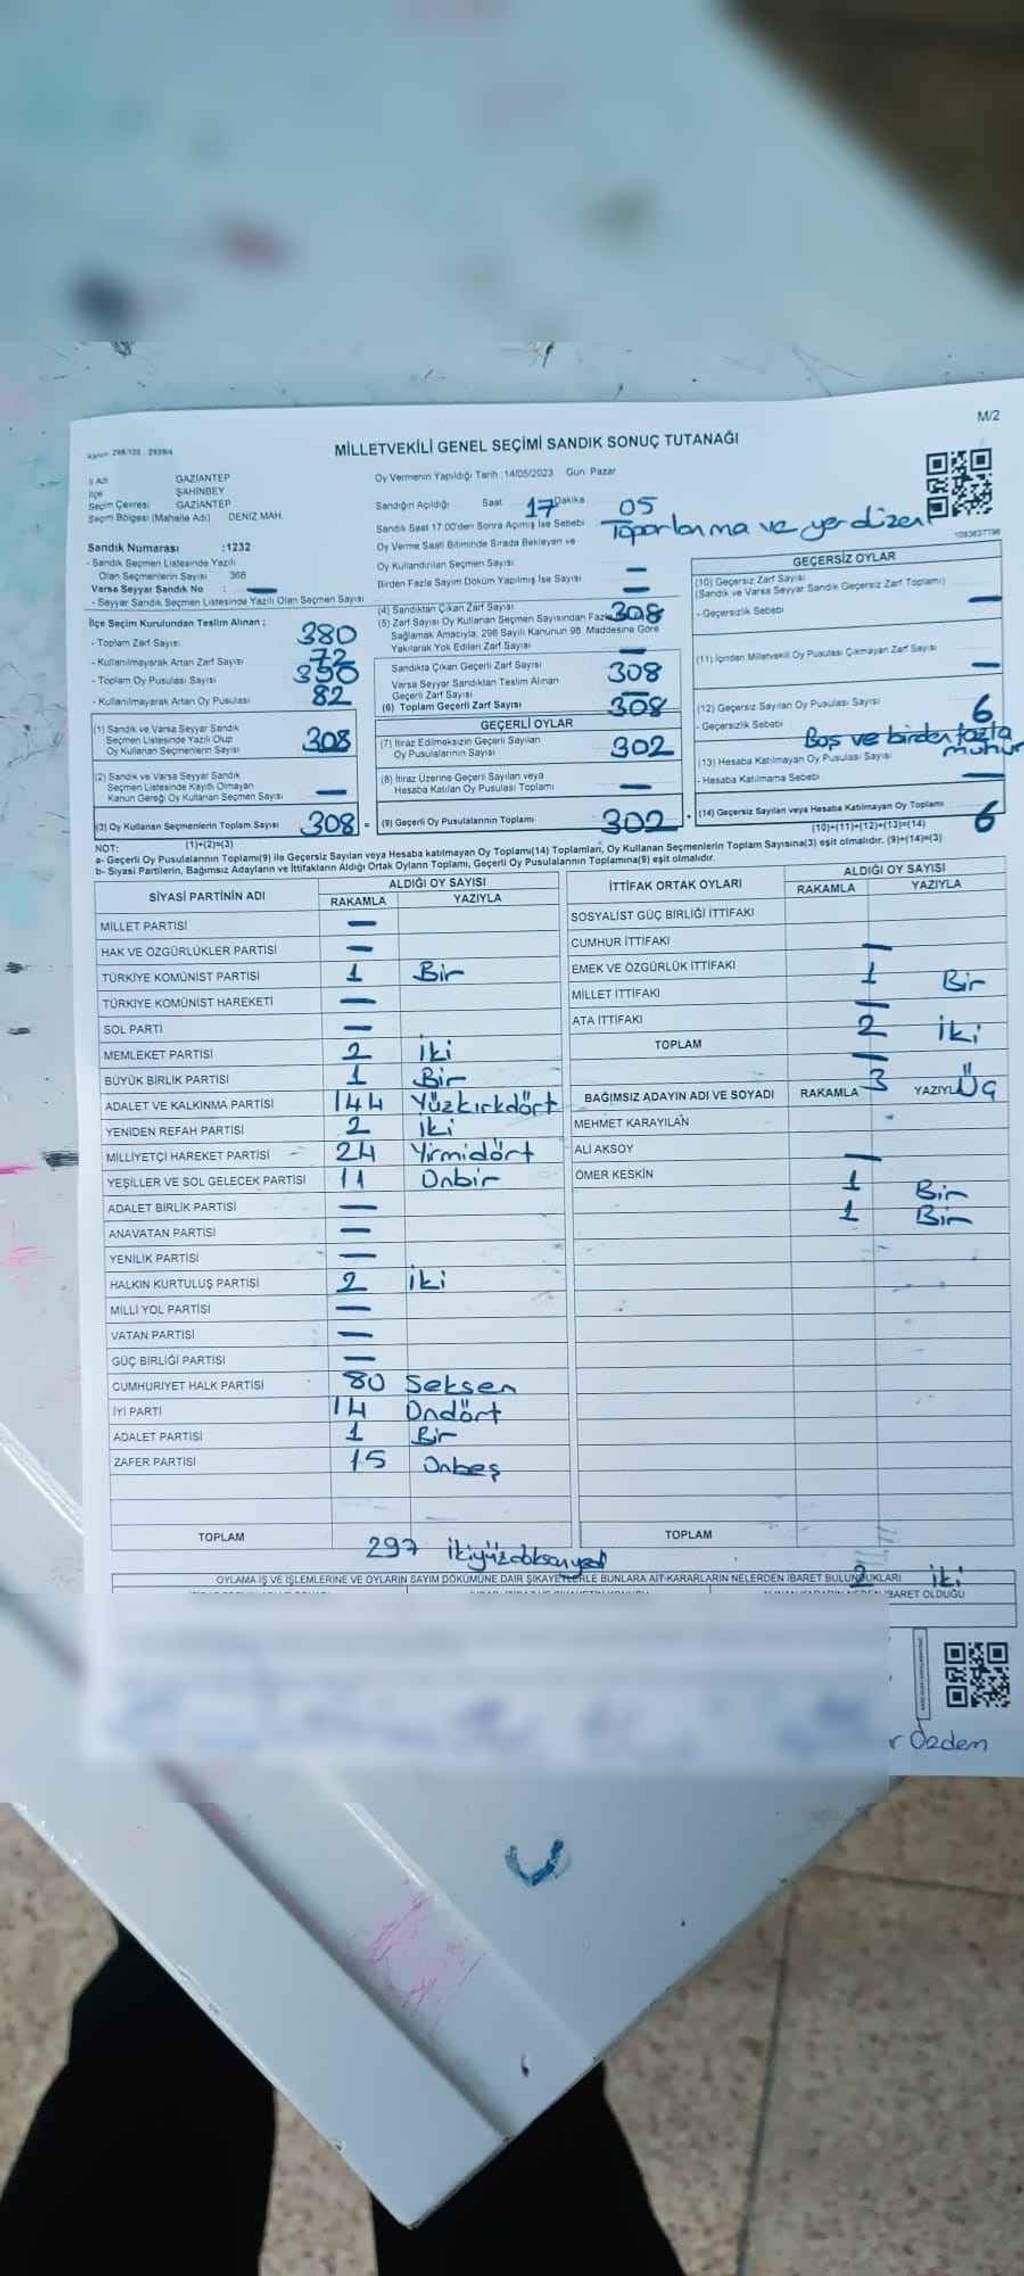 M/2
Kanun: 298/105 - 2839/4
MİLLETVEKİLİ GENEL SEÇİMİ SANDIK SONUÇ TUTANAĞI
İl Adı GAZİANTEP
İlçe ŞAHİNBEY
Seçim Çevresi GAZİANTEP
Seçim Bölgesi (Mahalle Adı) DENİZ MAH.
Sandık Numarası :1232
- Sandık Seçmen Listesinde Yazılı
Olan Seçmenlerin Sayısı 368
Varsa Seyyar Sandık No : —
- Seyyar Sandık Seçmen Listesinde Yazılı Olan Seçmen Sayısı
Oy Vermenin Yapıldığı Tarih :14/05/2023 Gün: Pazar
Sandığın Açıldığı Saat 17 Dakika 05
Sandık Saat 17:00'den Sonra Açılmış İse Sebebi Toparlanma ve yer düzen
Oy Verme Saati Bitiminde Sırada Bekleyen ve
Oy Kullandırılan Seçmen Sayısı —
Birden Fazla Sayım Döküm Yapılmış İse Sayısı —
1093637798
İlçe Seçim Kurulundan Teslim Alınan :
- Toplam Zarf Sayısı 380
- Kullanılmayarak Artan Zarf Sayısı 72
- Toplam Oy Pusulası Sayısı 390
- Kullanılmayarak Artan Oy Pusulası 82
(1) Sandık ve Varsa Seyyar Sandık
Seçmen Listesinde Yazılı Olup
Oy Kullanan Seçmenlerin Sayısı 308
(2) Sandık ve Varsa Seyyar Sandık
Seçmen Listesinde Kayıtlı Olmayan
Kanun Gereği Oy Kullanan Seçmen Sayısı —
(3) Oy Kullanan Seçmenlerin Toplam Sayısı 308 =
(1)+(2)=(3)
(4) Sandıktan Çıkan Zarf Sayısı 308
(5) Zarf Sayısı Oy Kullanan Seçmen Sayısından Fazla
Sağlamak Amacıyla, 298 Sayılı Kanunun 98. Maddesine Göre
Yakılarak Yok Edilen Zarf Sayısı —
Sandıkta Çıkan Geçerli Zarf Sayısı 308
Varsa Seyyar Sandıktan Teslim Alınan
Geçerli Zarf Sayısı —
(6) Toplam Geçerli Zarf Sayısı 308
GEÇERLİ OYLAR
(7) İtiraz Edilmeksizin Geçerli Sayılan
Oy Pusulalarının Sayısı 302
(8) İtiraz Üzerine Geçerli Sayılan veya
Hesaba Katılan Oy Pusulası Toplamı —
(9) Geçerli Oy Pusulalarının Toplamı 302 +
GEÇERSİZ OYLAR
(10) Geçersiz Zarf Sayısı
(Sandık ve Varsa Seyyar Sandık Geçersiz Zarf Toplamı) —
- Geçersizlik Sebebi
(11) İçinden Milletvekili Oy Pusulası Çıkmayan Zarf Sayısı —
(12) Geçersiz Sayılan Oy Pusulası Sayısı 6
- Geçersizlik Sebebi Boş ve birden fazla mühür
(13) Hesaba Katılmayan Oy Pusulası Sayısı —
- Hesaba Katılmama Sebebi
(14) Geçersiz Sayılan veya Hesaba Katılmayan Oy Toplamı 6
(10)+(11)+(12)+(13)=(14)
NOT:
a- Geçerli Oy Pusulalarının Toplamı(9) ile Geçersiz Sayılan veya Hesaba katılmayan Oy Toplamı(14) Toplamları, Oy Kullanan Seçmenlerin Toplam Sayısına(3) eşit olmalıdır. (9)+(14)=(3)
b- Siyasi Partilerin, Bağımsız Adayların ve İttifakların Aldığı Ortak Oyların Toplamı, Geçerli Oy Pusulalarının Toplamına(9) eşit olmalıdır.
SİYASİ PARTİNİN ADI ALDIĞI OY SAYISI
RAKAMLA YAZIYLA
MİLLET PARTİSİ —
HAK VE ÖZGÜRLÜKLER PARTİSİ —
TÜRKİYE KOMÜNİST PARTİSİ 1 Bir
TÜRKİYE KOMÜNİST HAREKETİ —
SOL PARTİ —
MEMLEKET PARTİSİ 2 iki
BÜYÜK BİRLİK PARTİSİ 1 Bir
ADALET VE KALKINMA PARTİSİ 144 Yüzkırkdört
YENİDEN REFAH PARTİSİ 2 iki
MİLLİYETÇİ HAREKET PARTİSİ 24 Yirmidört
YEŞİLLER VE SOL GELECEK PARTİSİ 11 Onbir
ADALET BİRLİK PARTİSİ —
ANAVATAN PARTİSİ —
YENİLİK PARTİSİ —
HALKIN KURTULUŞ PARTİSİ 2 iki
MİLLİ YOL PARTİSİ —
VATAN PARTİSİ —
GÜÇ BİRLİĞİ PARTİSİ —
CUMHURİYET HALK PARTİSİ 80 Seksen
İYİ PARTİ 14 Ondört
ADALET PARTİSİ 1 Bir
ZAFER PARTİSİ 15 Onbeş
TOPLAM 297 ikiyüzdoksanyedi
İTTİFAK ORTAK OYLARI ALDIĞI OY SAYISI
RAKAMLA YAZIYLA
SOSYALİST GÜÇ BİRLİĞİ İTTİFAKI
CUMHUR İTTİFAKI —
EMEK VE ÖZGÜRLÜK İTTİFAKI 1 Bir
MİLLET İTTİFAKI —
ATA İTTİFAKI 2 iki
TOPLAM —
BAĞIMSIZ ADAYIN ADI VE SOYADI RAKAMLA 3 YAZIYLA Üç
MEHMET KARAYILAN
ALİ AKSOY —
ÖMER KESKİN 1 Bir
1 Bir
TOPLAM
2 iki
OYLAMA İŞ VE İŞLEMLERİNE VE OYLARIN SAYIM DÖKÜMÜNE DAİR ŞİKAYETLERLE BUNLARA AİT KARARLARIN NELERDEN İBARET BULUNDUKLARI
İBARET OLDUĞU
r Özdem